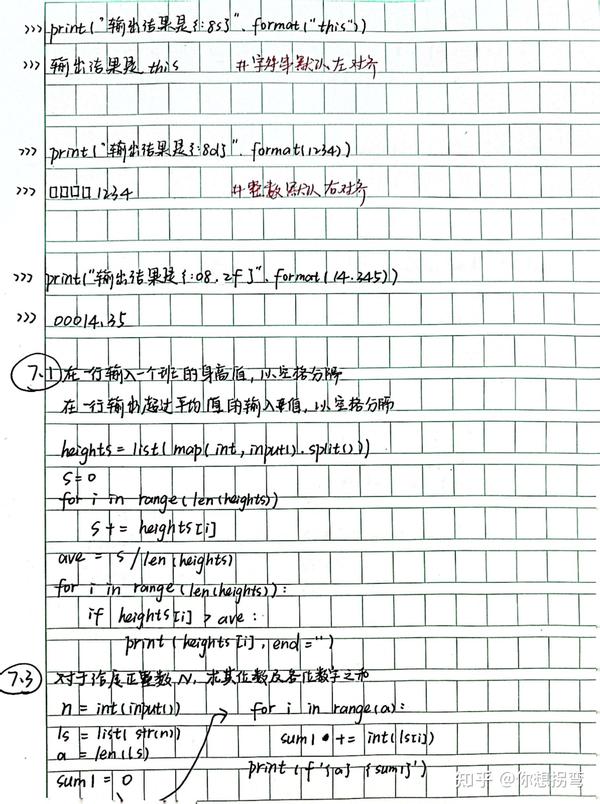 >>> print("输出结果是{:8s}".format("this"))
>>> 输出结果是 this #字符串默认左对齐
>>> print("输出结果是{:8d}".format(1234))
>>> □□□□1234 #整数默认右对齐
>>> print("输出结果是{:08.2f}".format(14.345))
>>> 00014.35
7.1 在一行输入一个班的身高值,以空格分隔
在一行输出超过平均值的输入值,以空格分隔
heights = list(map(int, input().split()))
s=0
for i in range(len(heights))
s += heights[i]
ave = s/len(heights)
for i in range(len(heights)):
if heights[i] > ave:
print(heights[i], end='')
7.3 对于给定正整数N,求其位数及各位数字之和
n = int(input())
ls = list(str(n))
a = len(ls)
sum1 = 0
for i in range(a):
sum1 += int(ls[i])
print(f'{a} {sum1}')
知乎 @你想拐弯